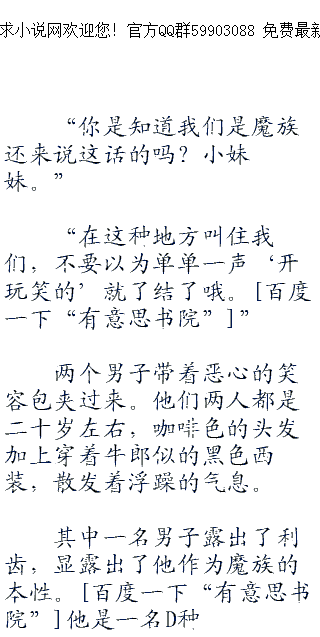 求小说网欢迎您！官方QQ群59903088 免费最新
“你是知道我们是魔族
还来说这话的吗？小妹
妹。”
“在这种地方叫住我
们，不要以为单单一声‘开
玩笑的’就了结了哦。[百度
一下“有意思书院”]”
两个男子带着恶心的笑
容包夹过来。他们两人都是
二十岁左右，咖啡色的头发
加上穿着牛郎似的黑色西
装，散发着浮躁的气息。
其中一名男子露出了利
齿，显露出了他作为魔族的
本性。[百度一下“有意思书
院”]他是一名D种